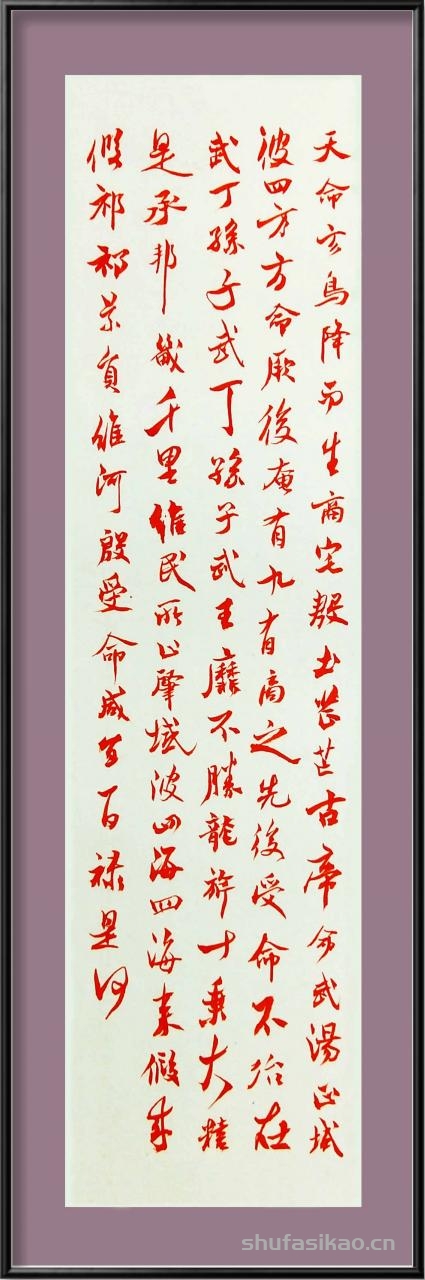 天命玄鳥降而生商宅殷土芒芒古帝命武湯正域
彼四方方命厥後奄有九有商之先後受命不殆在
武丁孫子武丁孫子武王靡不勝龍旂十乘大糦
是承邦畿千里維民所止肇域彼四海四海來假來
假祁祁景員維河殷受命咸宜百祿是何
shufasikao.cn